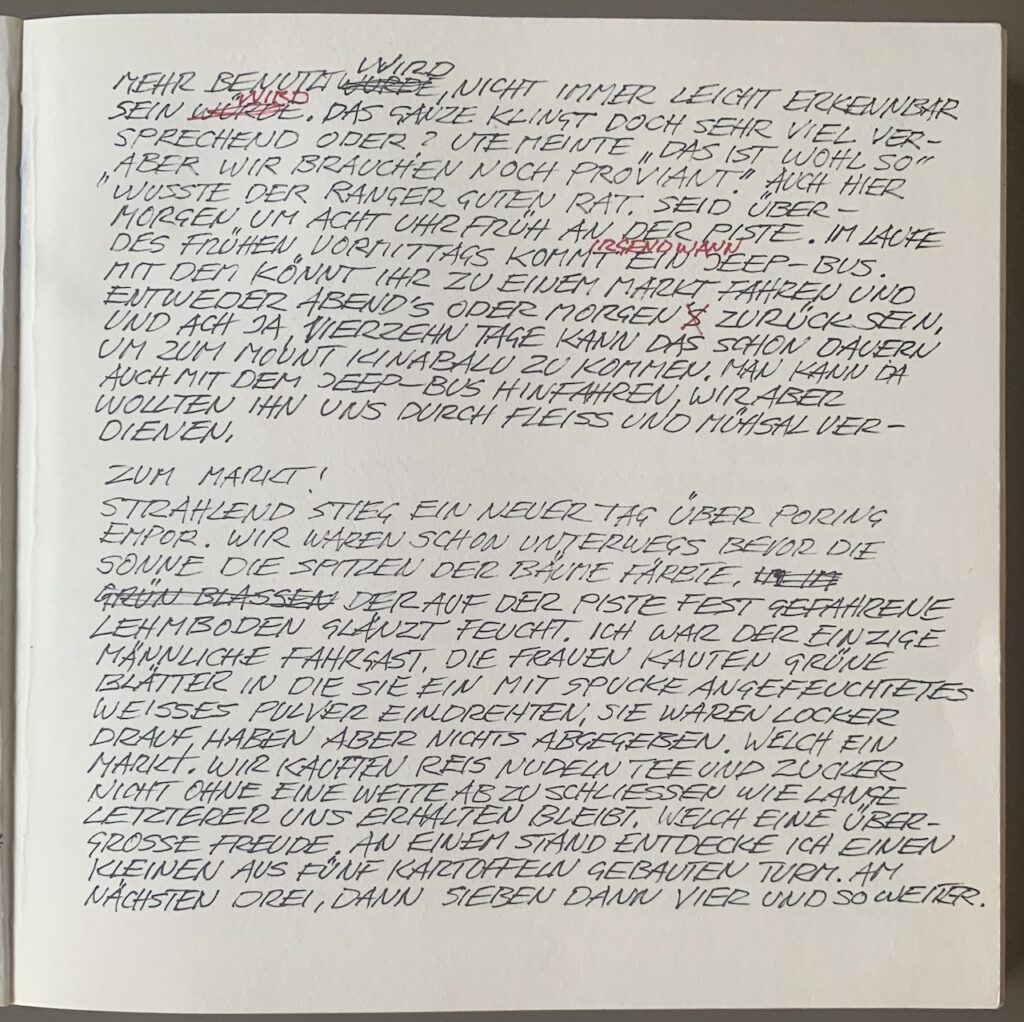 WIRD
MEHR BENUTZT WURDE, NICHT IMMER LEICHT ERKENNBAR
WIRD
SEIN WÜRDE. DAS GANZE KLINGT DOCH SEHR VIEL VER-
SPRECHEND ODER? UTE MEINTE „DAS IST WOHL SO"
„ABER WIR BRAUCHEN NOCH PROVIANT." AUCH HIER
WUSSTE DER RANGER GUTEN RAT. SEID ÜBER-
MORGEN UM ACHT UHR FRÜH AN DER PISTE. IM LAUFE
IRGENDWANN
DES FRÜHEN VORMITTAGS KOMMT EIN JEEP-BUS.
MIT DEM KÖNNT IHR ZU EINEM MARKT FAHREN UND
ENTWEDER ABEND'S ODER MORGEN'S ZURÜCK SEIN.
UND ACH JA, VIERZEHN TAGE KANN DAS SCHON DAUERN
UM ZUM MOUNT KINABALU ZU KOMMEN. MAN KANN DA
AUCH MIT DEM JEEP-BUS HINFAHREN, WIR ABER
WOLLTEN IHN UNS DURCH FLEISS UND MÜHSAL VER-
DIENEN.
ZUM MARKT!
STRAHLEND STIEG EIN NEUER TAG ÜBER PORING
EMPOR. WIR WAREN SCHON UNTERWEGS BEVOR DIE
SONNE DIE SPITZEN DER BÄUME FÄRBTE.
GRÜN BLASSEN DER AUF DER PISTE FEST GEFAHRENE
LEHMBODEN GLÄNZT FEUCHT. ICH WAR DER EINZIGE
MÄNNLICHE FAHRGAST. DIE FRAUEN KAUTEN GRÜNE
BLÄTTER IN DIE SIE EIN MIT SPUCKE ANGEFEUCHTETES
WEISSES PULVER EINDREHTEN, SIE WAREN LOCKER
DRAUF, HABEN ABER NICHTS ABGEGEBEN. WELCH EIN
MARKT. WIR KAUFTEN REIS NUDELN TEE UND ZUCKER
NICHT OHNE EINE WETTE AB ZU SCHLIESSEN WIE LANGE
LETZTERER UNS ERHALTEN BLEIBT. WELCH EINE ÜBER-
GROSSE FREUDE. AN EINEM STAND ENTDECKE ICH EINEN
KLEINEN AUS FÜNF KARTOFFELN GEBAUTEN TURM. AM
NÄCHSTEN DREI, DANN SIEBEN DANN VIER UND SO WEITER.